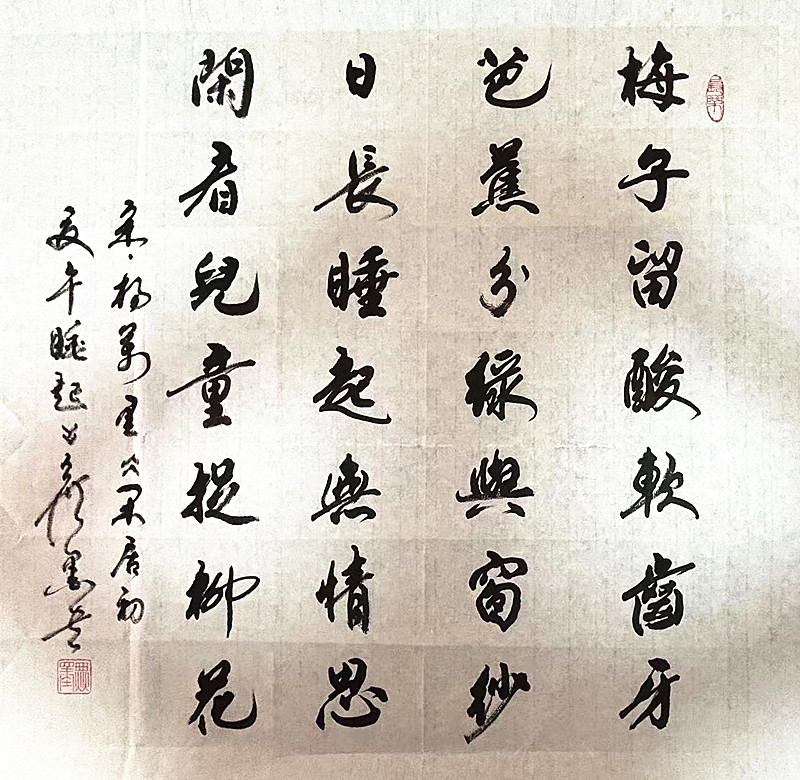 梅子留酸軟齒牙
芭蕉分綠與窗紗
日長睡起無情思
閑看兒童捉柳花
宋·楊萬里閑居初
夏午睡起